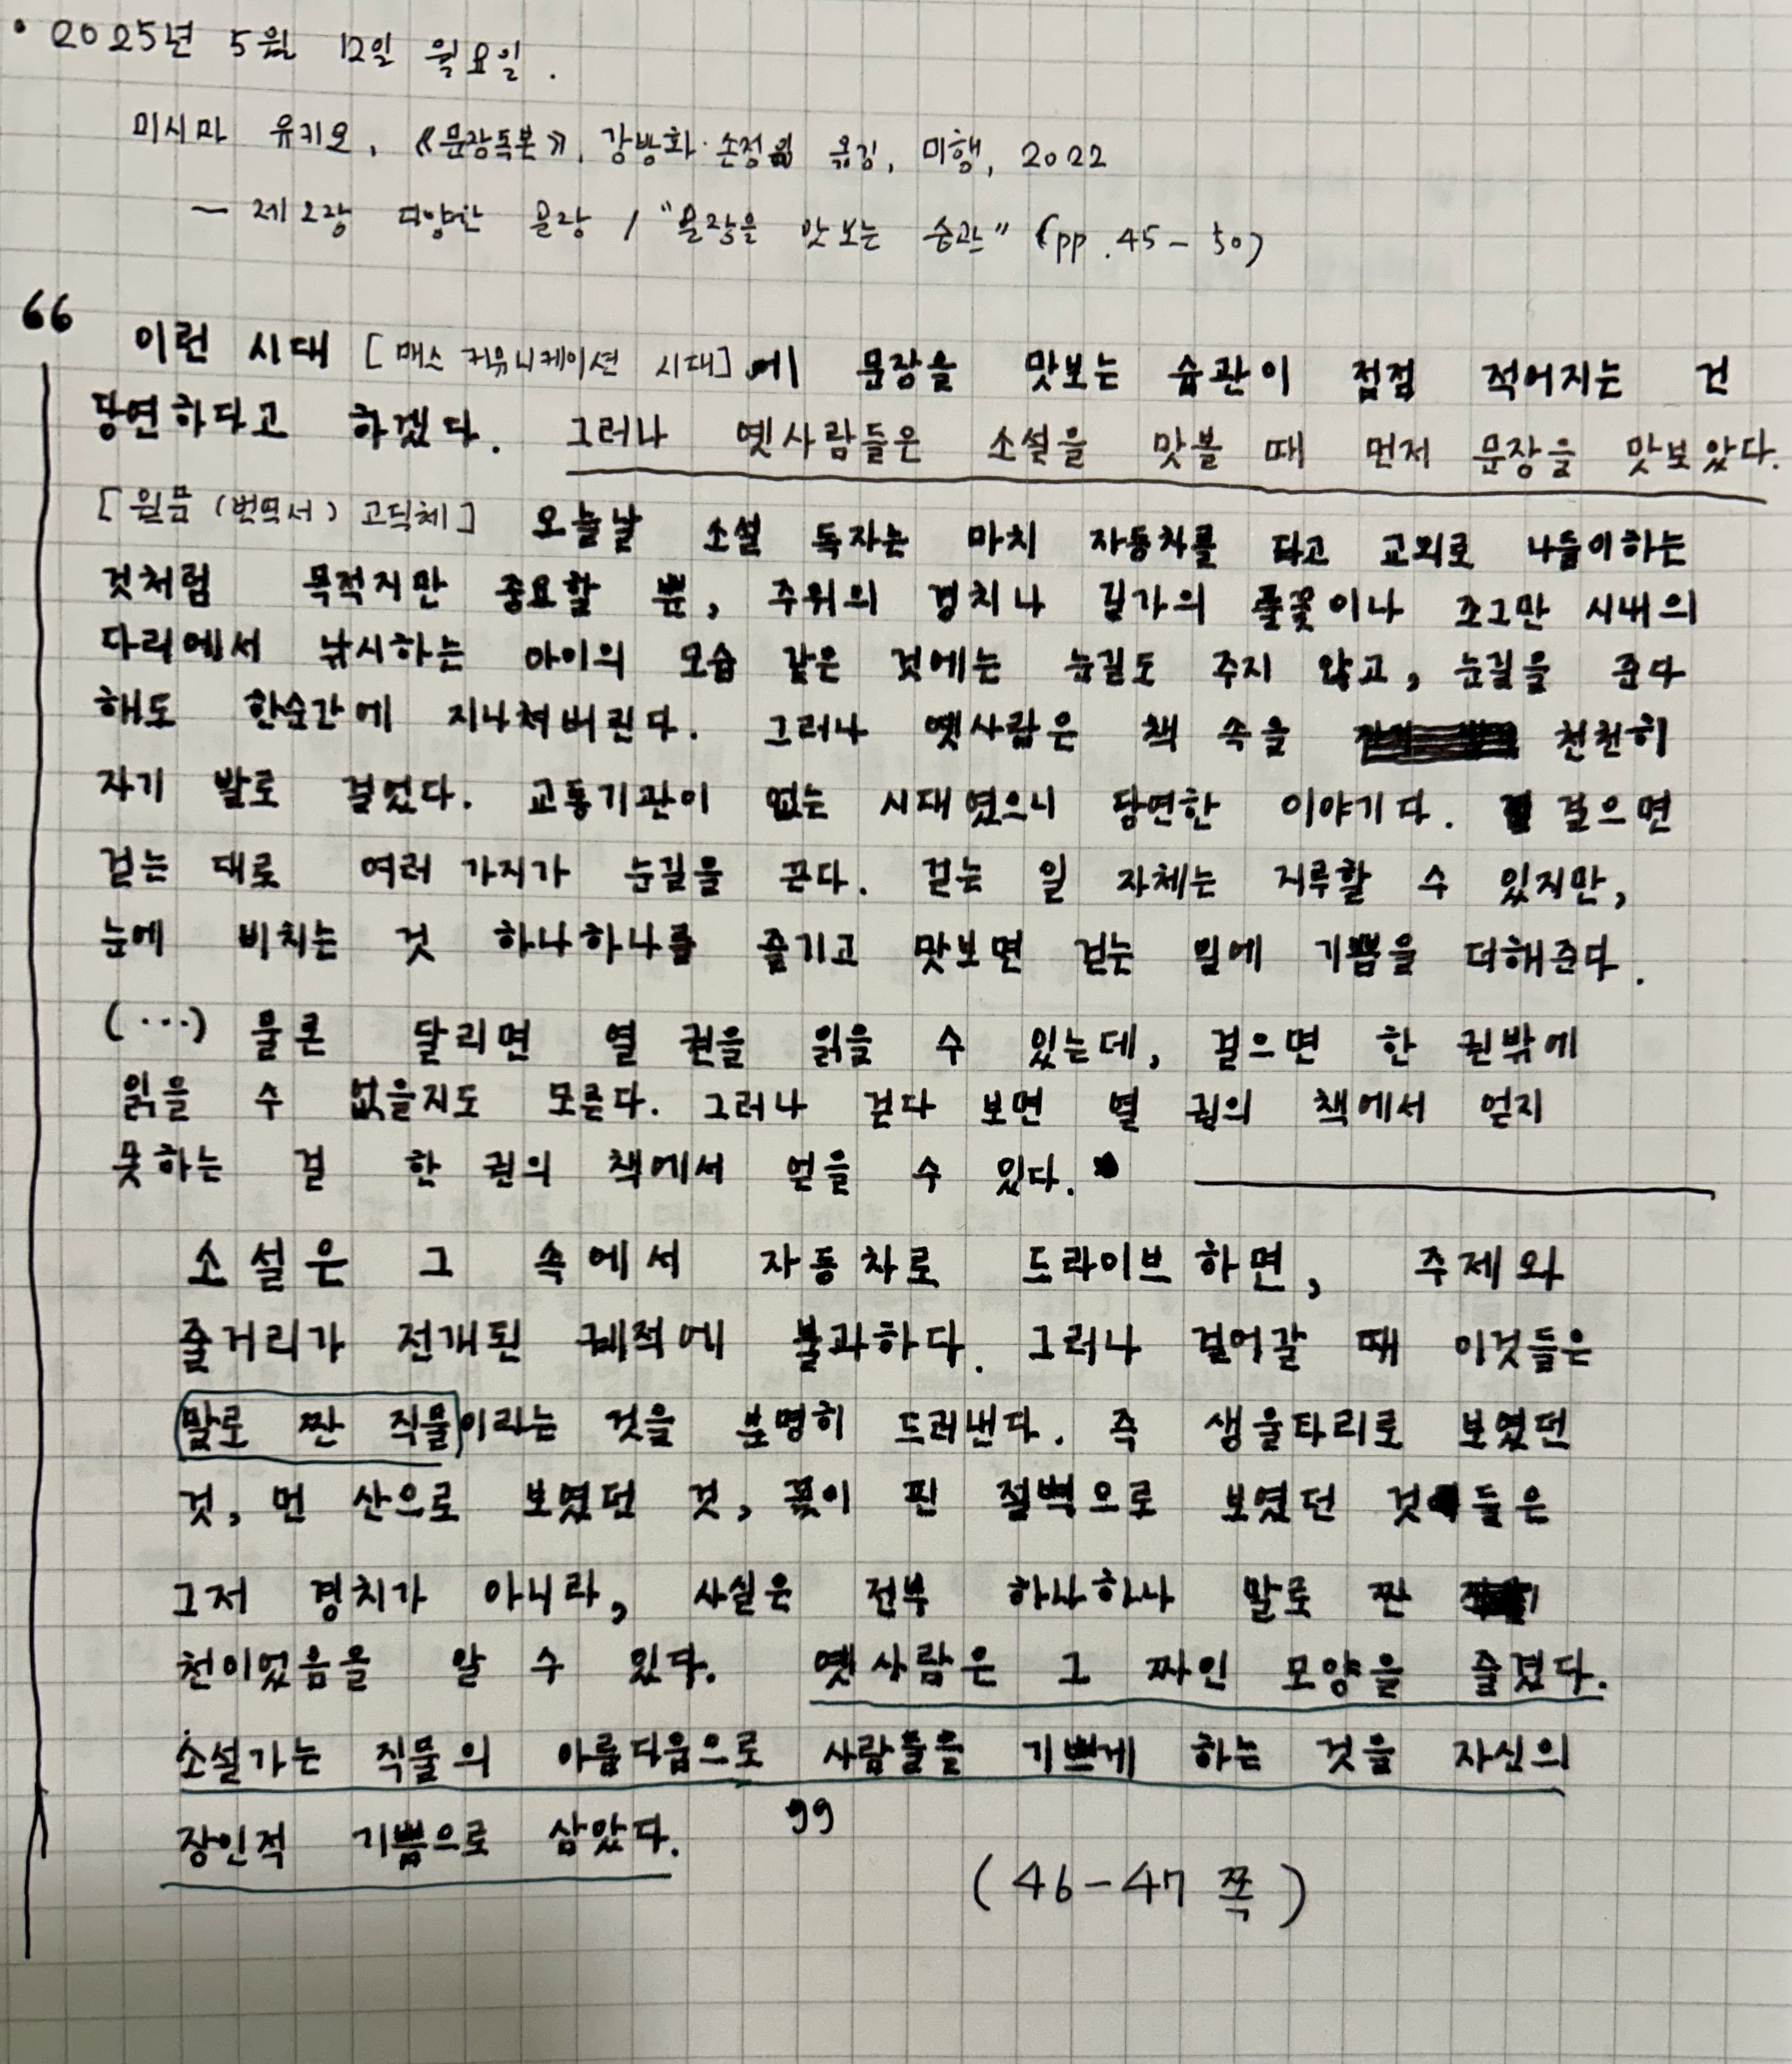 • 2025년 5월 12일 월요일.
미시마 유키오, 《문장독본》, 강방화·손정임 옮김, 미행, 2022
— 제2장 다양한 문장 / "문장을 맛보는 습관" (pp.45-50)
“ 이런 시대 [매스 커뮤니케이션 시대]에 문장을 맛보는 습관이 점점 적어지는 건
당연하다고 하겠다. 그러나 옛사람들은 소설을 맛볼 때 먼저 문장을 맛보았다.
[원문(번역서) 고딕체] 오늘날 소설 독자는 마치 자동차를 타고 교외로 나들이하는
것처럼 목적지만 중요할 뿐, 주위의 경치나 길가의 풀꽃이나 조그만 시내의
다리에서 낚시하는 아이의 모습 같은 것에는 눈길도 주지 않고, 눈길을 준다
해도 한순간에 지나쳐버린다. 그러나 옛사람은 책 속을 천천히
자기 발로 걸었다. 교통기관이 없는 시대였으니 당연한 이야기다. 걸으면
걷는 대로 여러 가지가 눈길을 끈다. 걷는 일 자체는 지루할 수 있지만,
눈에 비치는 것 하나하나를 즐기고 맛보면 걷는 일에 기쁨을 더해준다.
(…) 물론 달리면 열 권을 읽을 수 있는데, 걸으면 한 권밖에
읽을 수 없을지도 모른다. 그러나 걷다 보면 열 권의 책에서 얻지
못하는 걸 한 권의 책에서 얻을 수 있다.
소설은 그 속에서 자동차로 드라이브하면, 주제와
줄거리가 전개된 궤적에 불과하다. 그러나 걸어갈 때 이것들은
말로 짠 직물이라는 것을 분명히 드러낸다. 즉 생울타리로 보였던
것, 먼 산으로 보였던 것, 꽃이 핀 절벽으로 보였던 것들은
그저 경치가 아니라, 사실은 전부 하나하나 말로 짠
천이었음을 알 수 있다. 옛사람은 그 짜인 모양을 즐겼다.
소설가는 직물의 아름다움으로 사람들을 기쁘게 하는 것을 자신의
장인적 기쁨으로 삼았다. ”
(46-47쪽)